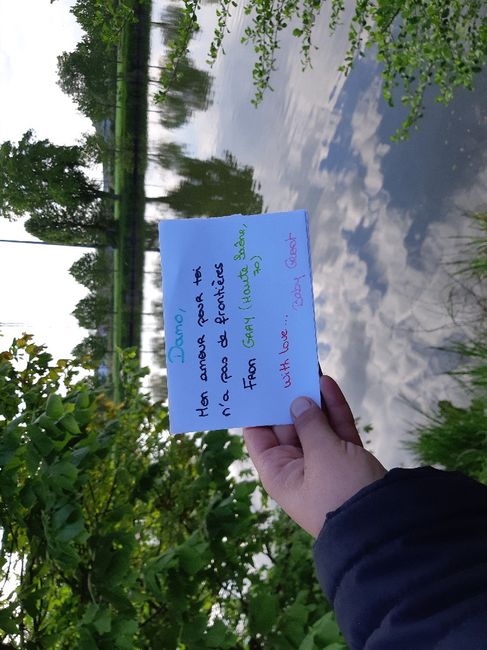 Damo,
Mon amour pour toi
n'a pas de frontières
From GRAY (Haute Saône,
70)
With love... Baby Groot